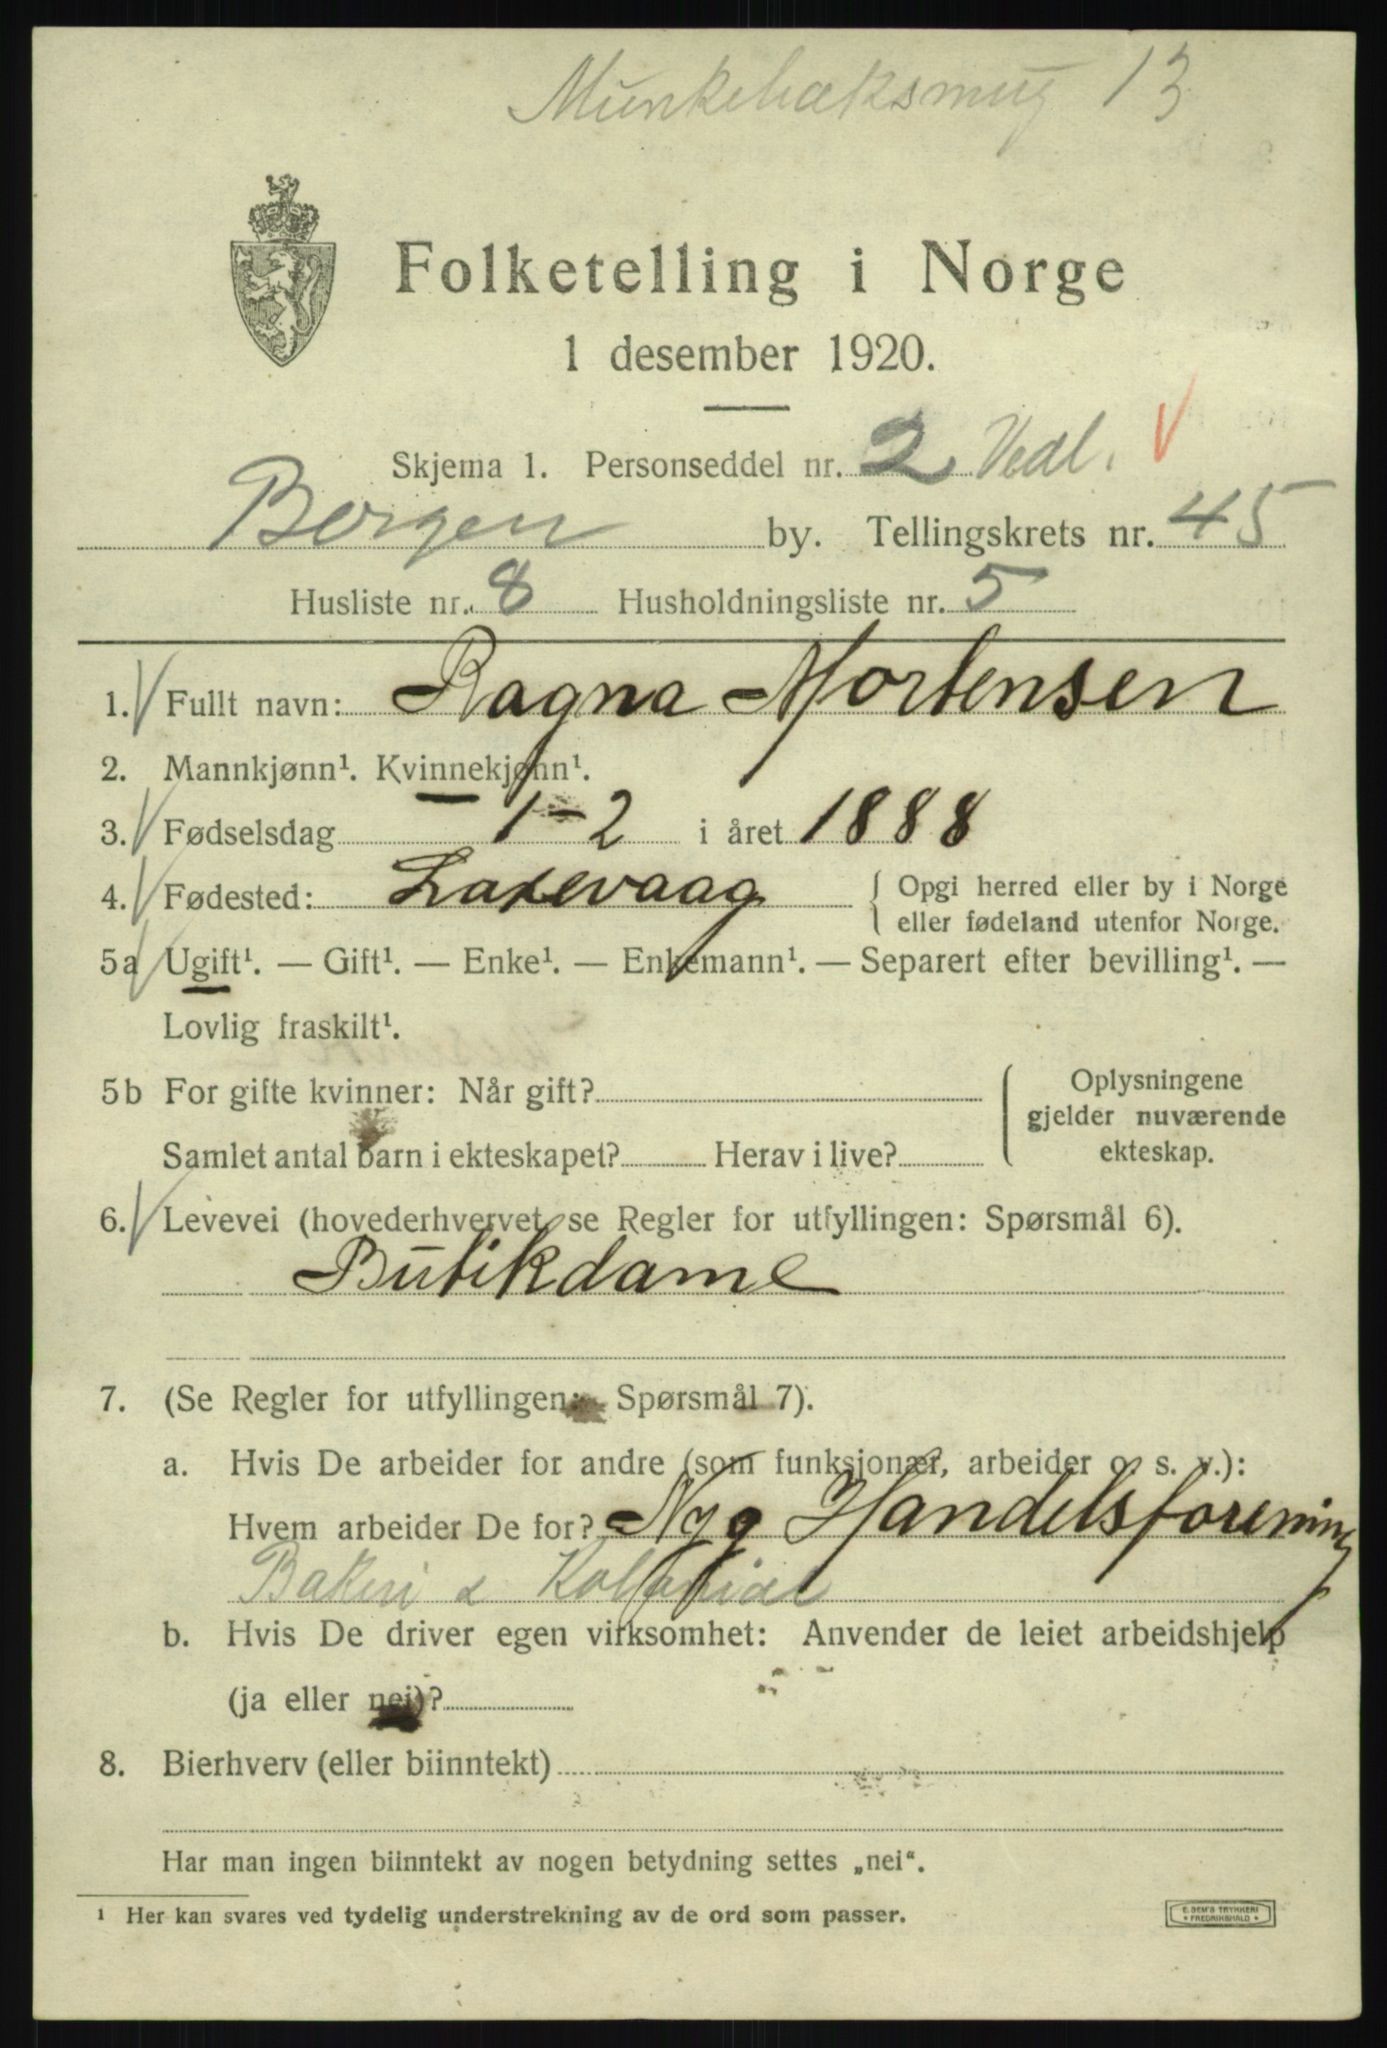 Munkebæksmug 13
Folketelling i Norge
1 desember 1920.
Skjema 1. Personseddel nr. 2 Vedl. V
Bergen by. Tellingskrets nr. 45
Husliste nr. 8 Husholdningsliste nr. 5
1. Fullt navn: Ragna Mortensen
2. Mannkjønn¹. Kvinnekjønn¹.
3. Fødselsdag 1-2 i året 1888
4. Fødested: Laxevaag { Opgi herred eller by i Norge
eller fødeland utenfor Norge.
5a Ugift¹. — Gift¹. — Enke¹. — Enkemann¹. — Separert efter bevilling¹. —
Lovlig fraskilt¹.
5b For gifte kvinner: Når gift? Oplysningene
gjelder nuværende
Samlet antal barn i ekteskapet? Herav i live? ekteskap.
6. Levevei (hovederhvervet, se Regler for utfyllingen: Spørsmål 6).
Butikdame
7. (Se Regler for utfyllingen: Spørsmål 7).
a. Hvis De arbeider for andre (som funksjonær, arbeider o. s. v.):
Hvem arbeider De for? Nyg Handelsforening
Bakeri & Kolonial
b. Hvis De driver egen virksomhet: Anvender de leiet arbeidshjelp
(ja eller nei)?
8. Bierhverv (eller biinntekt)
Har man ingen biinntekt av nogen betydning settes „nei“.
¹ Her kan svares ved tydelig understrekning av de ord som passer.
E. SEM'S TRYKKERI
* FREDRIKSHALD *